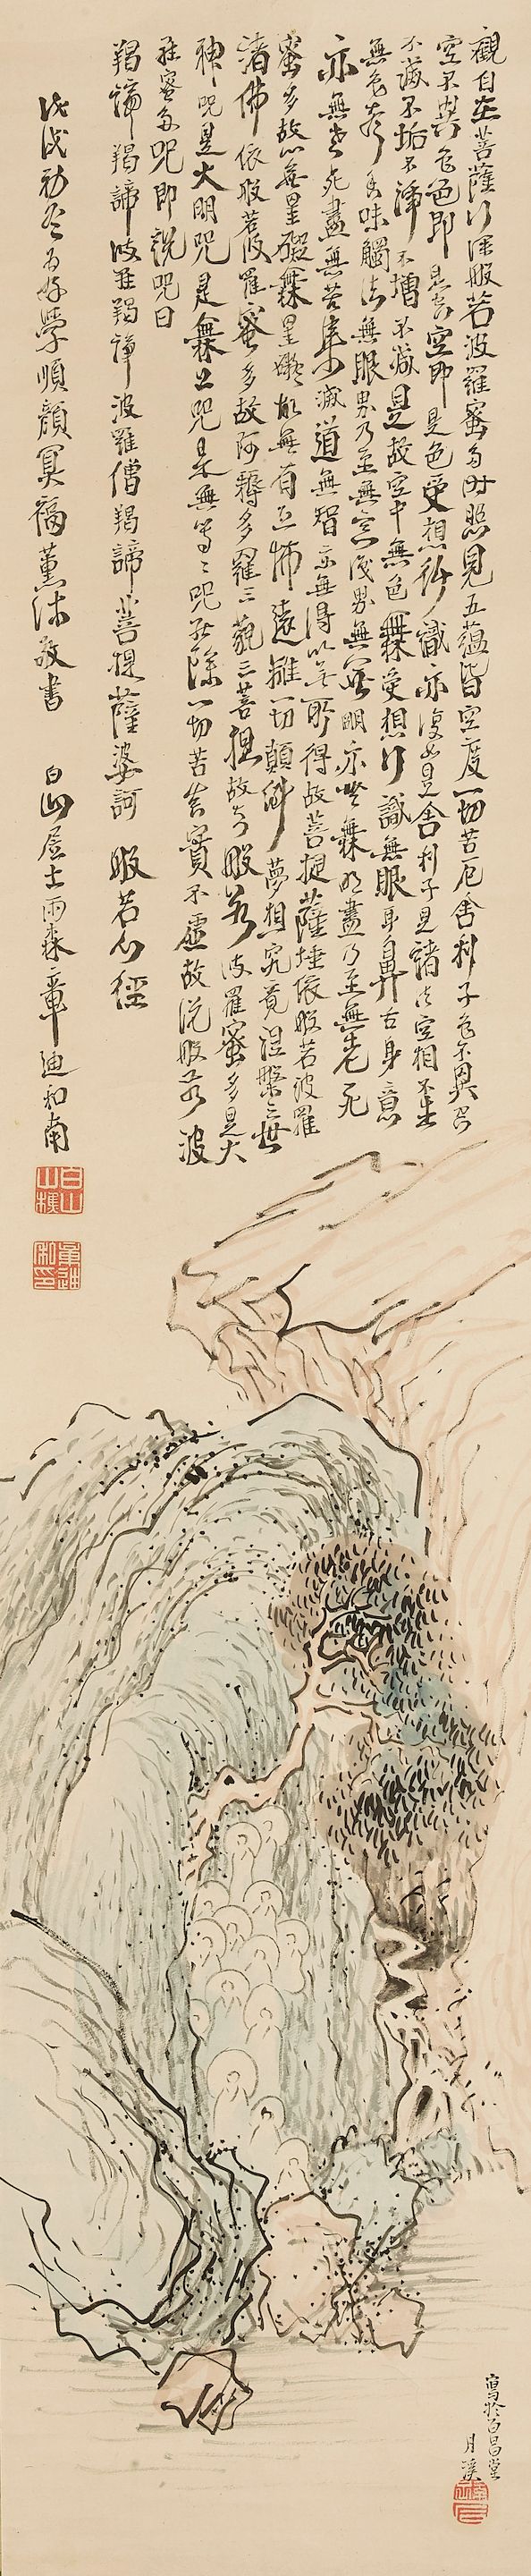 觀自在菩薩行深般若波羅蜜多時照見五蘊皆空度一切苦厄舍利子色不異空
空不異色色即是空空即是色受想行識亦復如是舍利子是諸法空相不生
不滅不垢不淨不增不減是故空中無色無受想行識無眼耳鼻舌身意
無色聲香味觸法無眼界乃至無意識界無無明亦無無明盡乃至無老死
亦無老死盡無苦集滅道無智亦無得以無所得故菩提薩埵依般若波羅
蜜多故無罣礙無罣礙故無有恐怖遠離一切顛倒夢想究竟涅槃三世
諸佛依般若波羅蜜多故阿耨多羅三藐三菩提故知般若波羅蜜多是大
神咒是大明咒是無上咒是無等等咒能除一切苦真實不虛故說般若波
羅蜜多咒即說咒曰
羯諦羯諦波羅羯諦波羅僧羯諦菩提薩婆訶 般若心經
戊戌初冬為好學順顏冥福薰沐敬書 白山居士雨森章迪和南
白山樵
章迪
寫於百昌堂
月溪